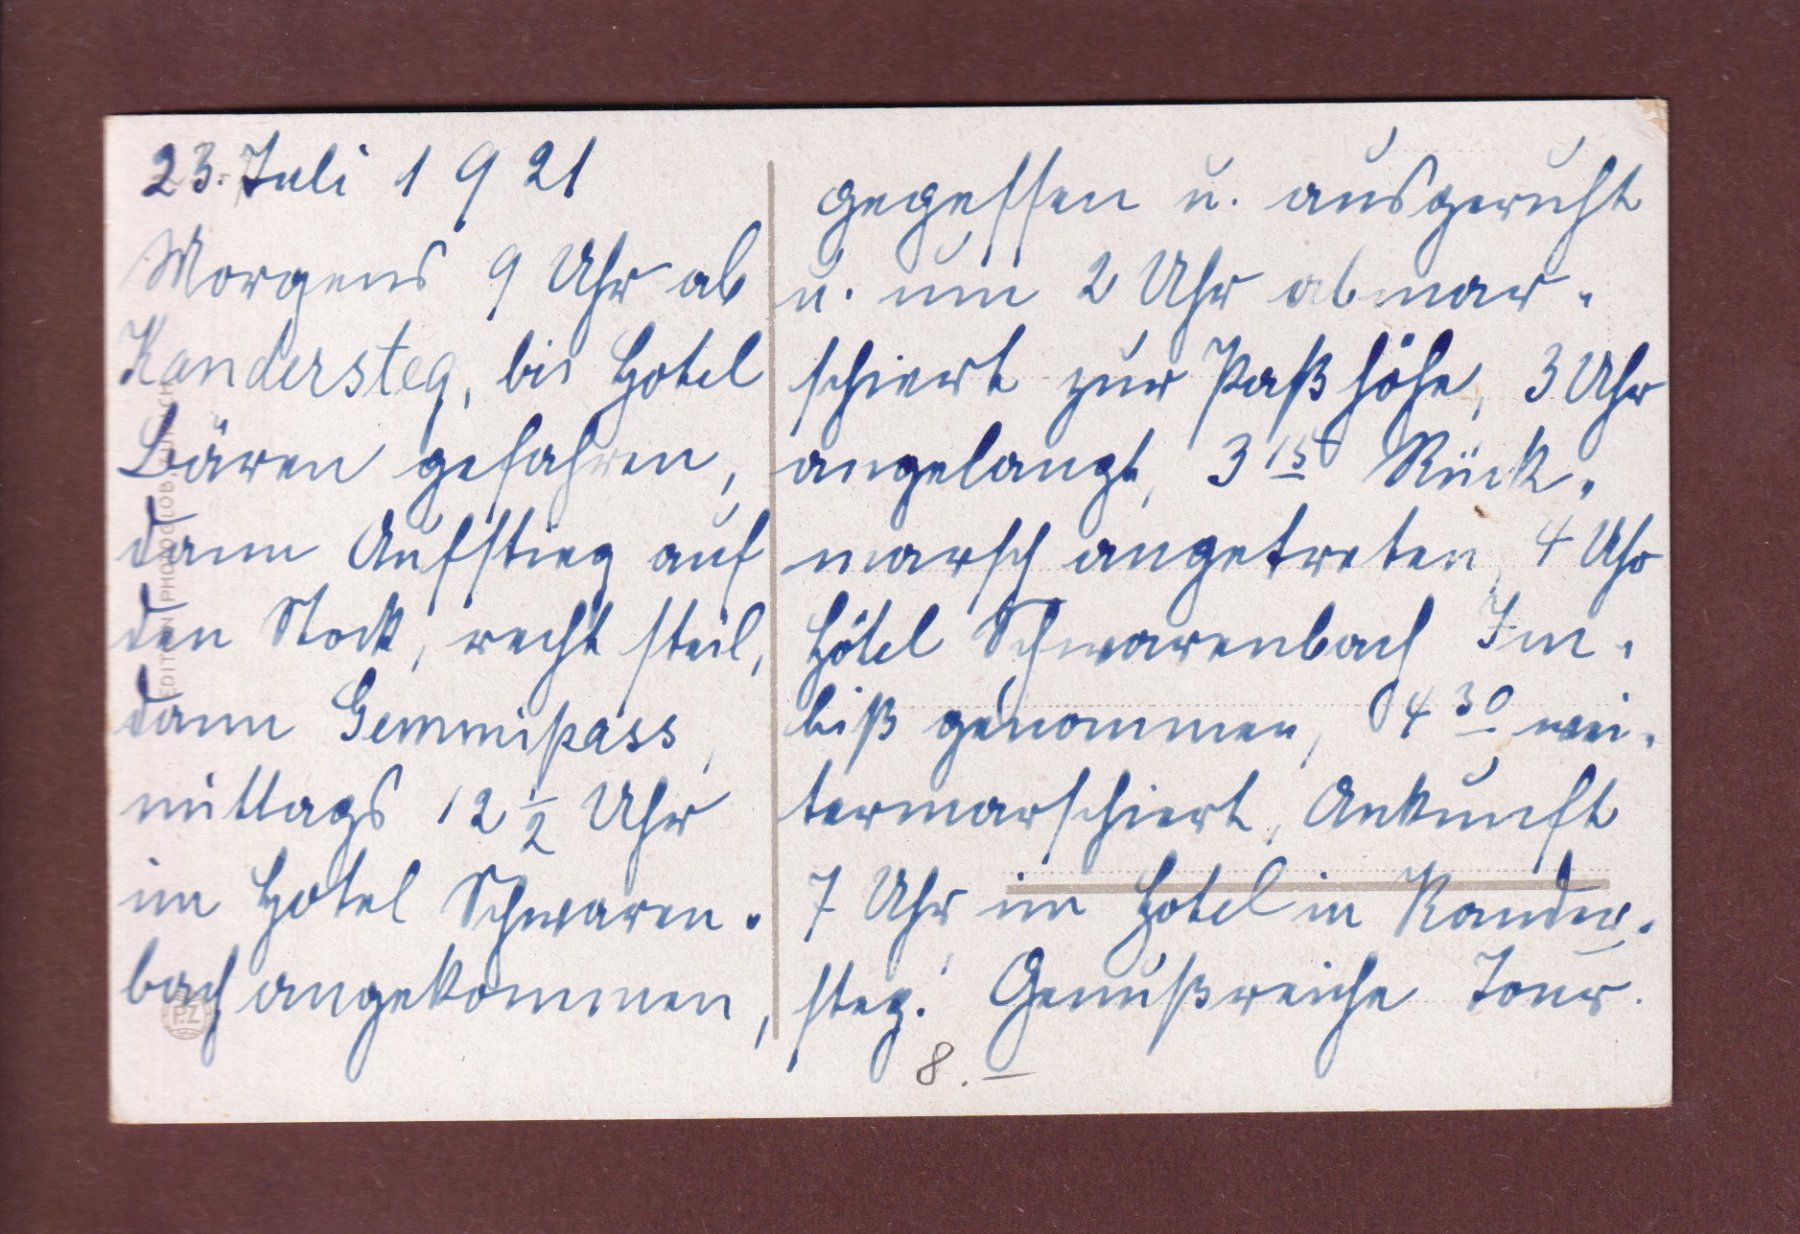 23. Juli 1921
Morgens 9 Uhr ab
Kandersteg, bis Hotel
Bären gefahren,
dann Aufstieg auf
den Stock, recht steil,
dann Gemmipass,
mittags 12 1/2 Uhr
im Hotel Schwaren-
bach angekommen,
gegessen u. ausgeruht
u. um 2 Uhr abmar-
schiert zur Paßhöhe, 3 Uhr
angelangt, 3 15 Rück-
marsch angetreten, 4 Uhr
Hôtel Schwarenbach Im-
biß genommen, 4 30 wei-
termarschiert, Ankunft
7 Uhr im Hotel in Kander-
steg. Genußreiche Tour.
8.—
PZ